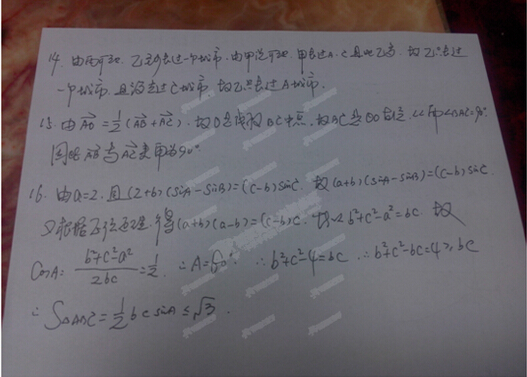 14. 由丙可知,乙至少去过一个城市,由甲说可知,甲去过A.C且比乙多,故乙只去过
一个城市,且没去过C城市,故乙只去过A城市.
15. 由AO=1/2(AB+AC).故O是线段BC中点,故BC是⊙O直径,从而∠BAC=90°
因此AB与AC夹角为90°
16. 由a=2.且(2+b)(sinA-sinB)=(c-b)sinC.故(a+b)(sinA-sinB)=(c-b)sinC
又根据正弦定理.得(a+b)(a-b)=(c-b)c.所以b²+c²-a²=bc.故
CosA=(b²+c²-a²)/2bc=1/2.∴A=60°.∴b²+c²-4=bc.∴b²+c²-bc=4≥bc
∴S△ABC=1/2bcsinA≤√3.